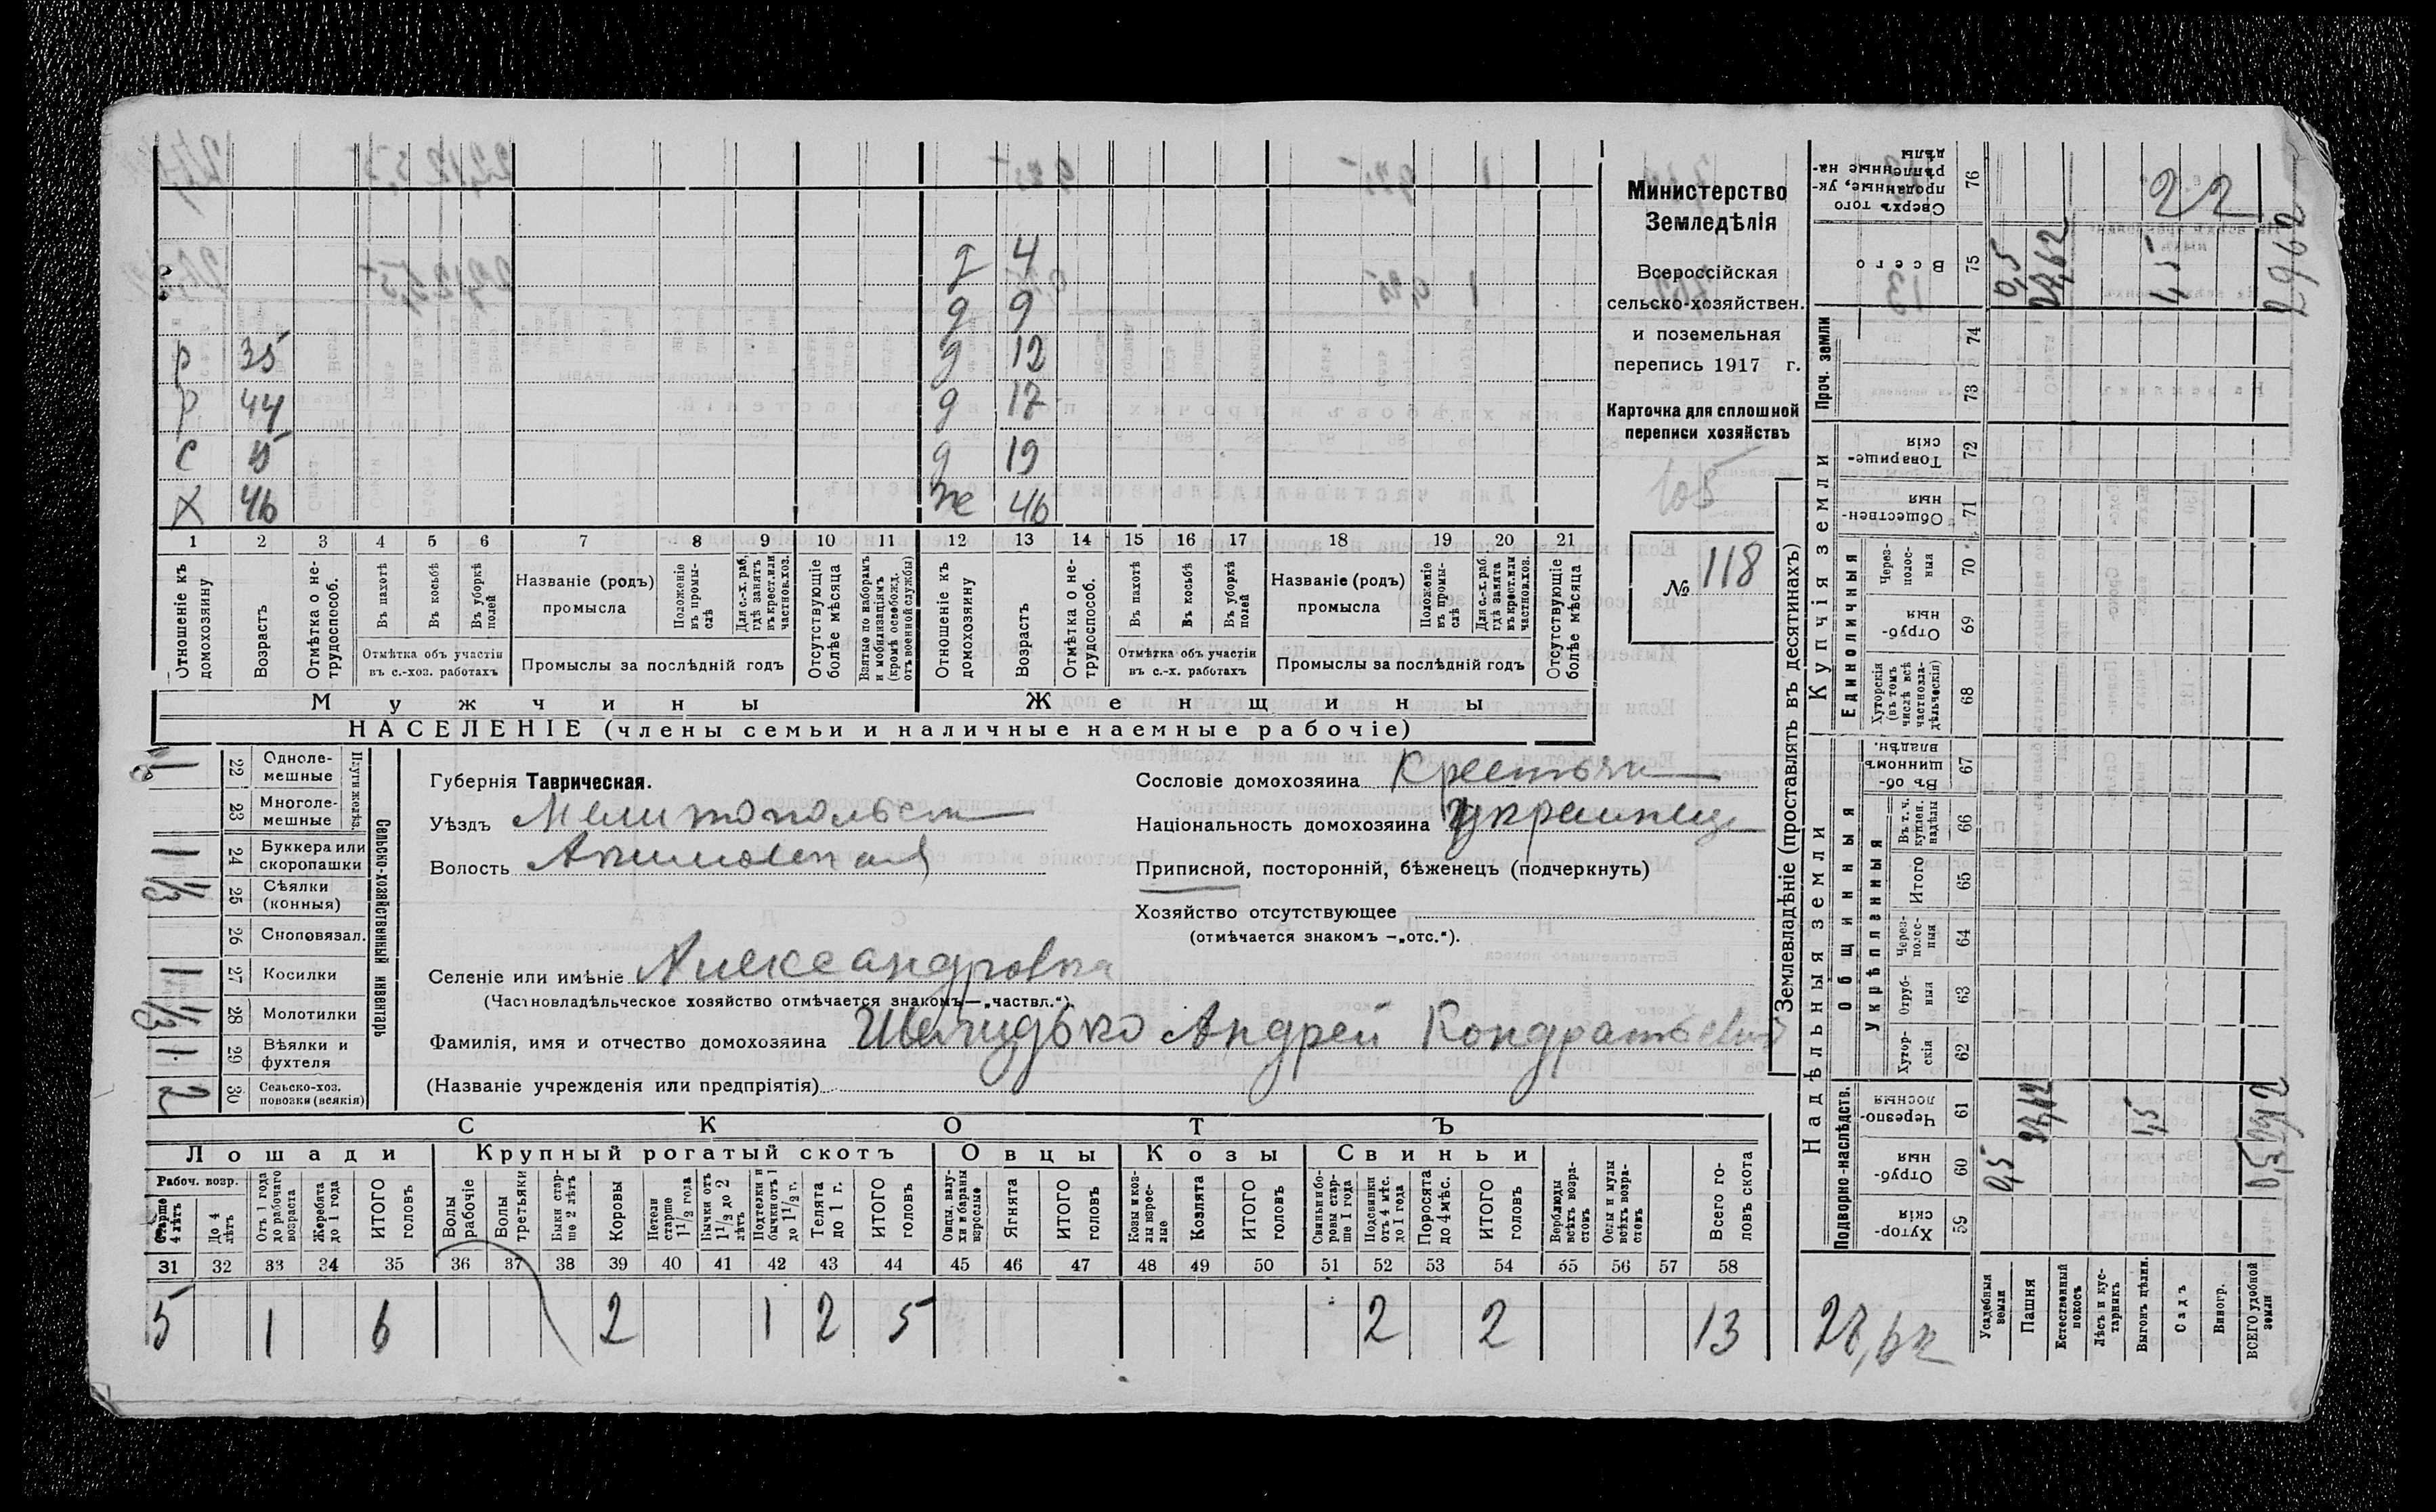 Министерство
Земледѣлія
Всероссійская
сельско-хозяйствен.
и поземельная
перепись 1917 г.
Карточка для сплошной
переписи хозяйствъ
105
№ 118
г 4
g 9
р 35 g 12
р 44 g 17
с 15 g 19
Х 46 же 46
1 2 3 4 5 6 7 8 9 10 11 12 13 14 15 16 17 18 19 20 21
Отношеніе къ домохозяину
Возрастъ
Отмѣтка о не-трудоспособ.
Въ пахотѣ
Въ косьбѣ
Въ уборкѣ полей
Отмѣтка объ участіи
въ с.-хоз. работахъ
Названіе (родъ)
промысла
Положеніе въ промы-слѣ
Для с.-х. раб. гдѣ занятъ въ крест. или частнов. хоз.
Промыслы за послѣдній годъ
Отсутствующіе болѣе мѣсяца
Взятые по наборамъ и мобилизаціямъ (кромѣ освобожд. отъ военной службы)
Отношеніе къ домохозяину
Возрастъ
Отмѣтка о не-трудоспособ.
Въ пахотѣ
Въ косьбѣ
Въ уборкѣ полей
Отмѣтка объ участіи
въ с.-х. работахъ
Названіе (родъ)
промысла
Положеніе въ промы-слѣ
Для с.-х. раб. гдѣ занята въ крест. или частнов. хоз.
Промыслы за послѣдній годъ
Отсутствующіе болѣе мѣсяца
Мужчины Женщины
НАСЕЛЕНІЕ (члены семьи и наличные наемные рабочіе)
Сельско-хозяйственный инвентарь
Плуги желѣз.
22 Одноле-мешные
23 Многоле-мешные
24 Буккера или скоропашки 1
25 Сѣялки (конныя) 1/3
26 Сноповязал.
27 Косилки 1
28 Молотилки 1/3
29 Вѣялки и фухтеля 1
30 Сельско-хоз. повозки (всякія) 2
Губернія Таврическая.
Уѣздъ Мелитопольск
Волость Акимовская
Селеніе или имѣніе Александровка
(Частновладѣльческое хозяйство отмѣчается знакомъ—„частвл.“).
Фамилія, имя и отчество домохозяина Швачидько Андрей Кондратьевич
(Названіе учрежденія или предпріятія)
Сословіе домохозяина Крестьян
Національность домохозяина Украинец
Приписной, посторонній, бѣженецъ (подчеркнуть)
Хозяйство отсутствующее
(отмѣчается знакомъ —„отс.“).
СКОТЪ
Лошади Крупный рогатый скотъ Овцы Козы Свиньи
Рабоч. возр.
Старше 4 лѣтъ
До 4 лѣтъ
Отъ 1 года до рабочаго возраста
Жеребята до 1 года
ИТОГО головъ
Волы рабочіе
Волы третьяки
Быки стар-ше 2 лѣтъ
Коровы
Нетели старше 1 1/2 года
Бычки отъ 1 1/2 до 2 лѣтъ
Подтелки и бычки отъ 1 до 1 1/2 г.
Телята до 1 г.
ИТОГО головъ
Овцы, валу-хи и бараны взрослые
Ягнята
ИТОГО головъ
Козы и коз-лы взрос-лые
Козлята
ИТОГО головъ
Свиньи и бо-ровы стар-ше 1 года
Подсвинки отъ 4 мѣс. до 1 года
Поросята до 4 мѣс.
ИТОГО головъ
Верблюды всѣхъ возра-стовъ
Ослы и мулы всѣхъ возра-стовъ
Всего го-ловъ скота
31 32 33 34 35 36 37 38 39 40 41 42 43 44 45 46 47 48 49 50 51 52 53 54 55 56 57 58
5 1 6 2 1 2 5 2 2 13
Землевладѣніе (проставлять въ десятинахъ)
Надѣльныя земли
Подворно-наслѣдств.
Хутор-скія 59
Отруб-ныя 60
Черезпо-лосныя 61
Общинныя
Укрѣпланныя
Хутор-скія 62
Отруб-ныя 63
Через-полос-ныя 64
Итого 65
Въ т. ч. куплен. надѣлы 66
Въ об-щинномъ владѣн. 67
Купчія земли
Единоличныя
Хуторскія (въ томъ числѣ всѣ частновла-дѣльческія) 68
Отруб-ныя 69
Через-полос-ныя 70
Обществен-ныя 71
Товарище-скія 72
Проч. земли
73 74
Всего 75
Сверхъ того проданные, ук-рѣпленные на-дѣлы 76
Усадебныя земли
Пашня
Естественный покосъ
Лѣсъ и кус-тарникъ
Выгонъ цѣлин.
Садъ
Виногр.
ВСЕГО удобной земли
0,5
1,5
22
0,5
1,5
2962